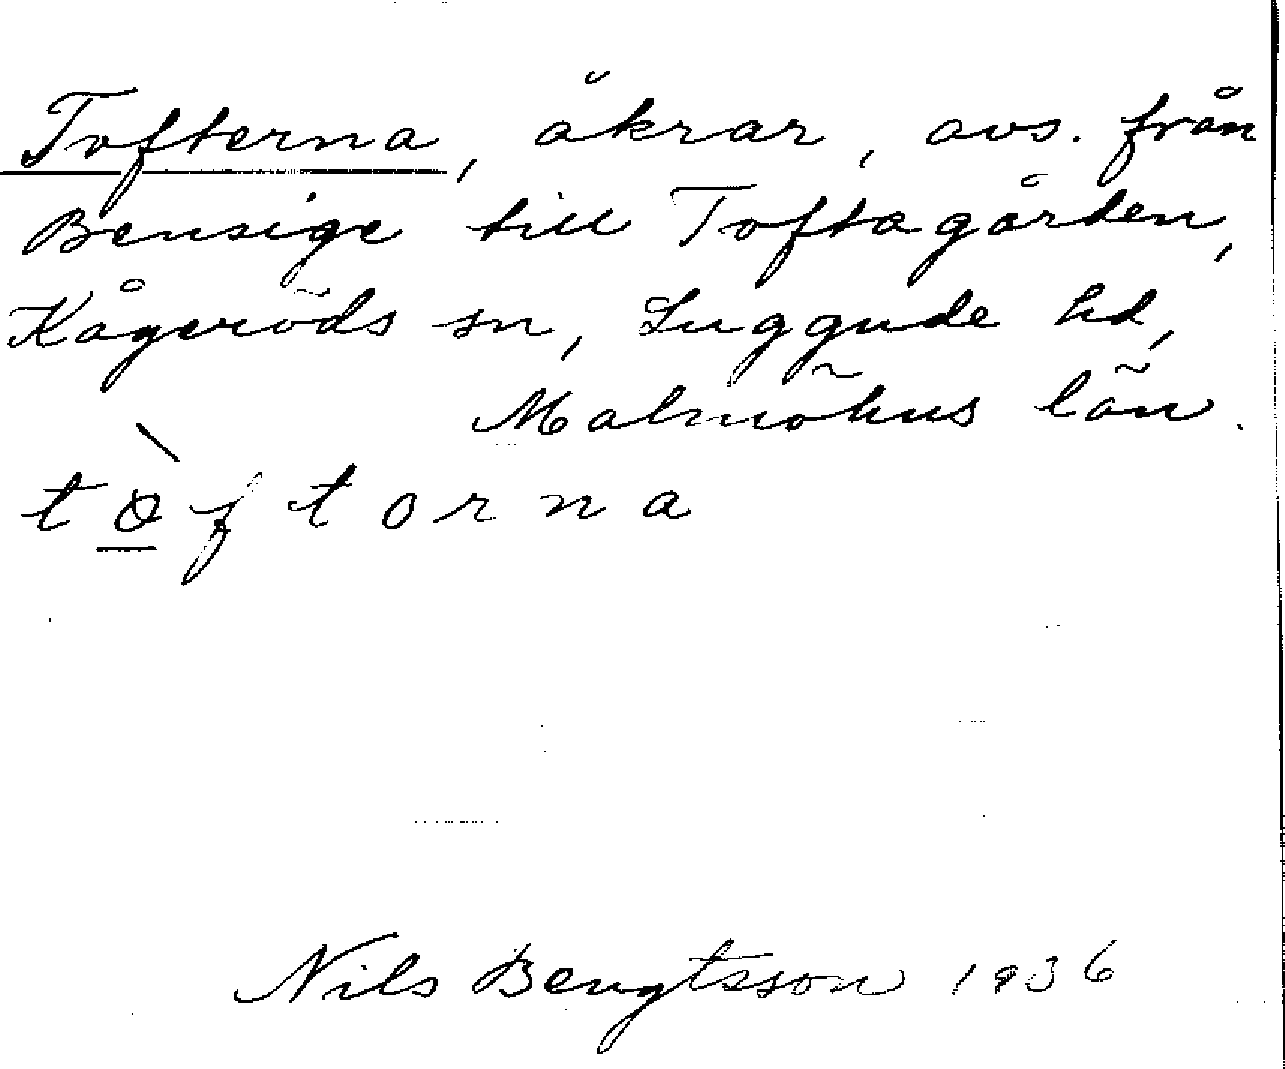 Tofterna, åkrar, avs. från
Bensige till Toftagården,
Kågeröds sn, Luggude hd,
Malmöhus län.
tòftorna
Nils Bengtsson 1936